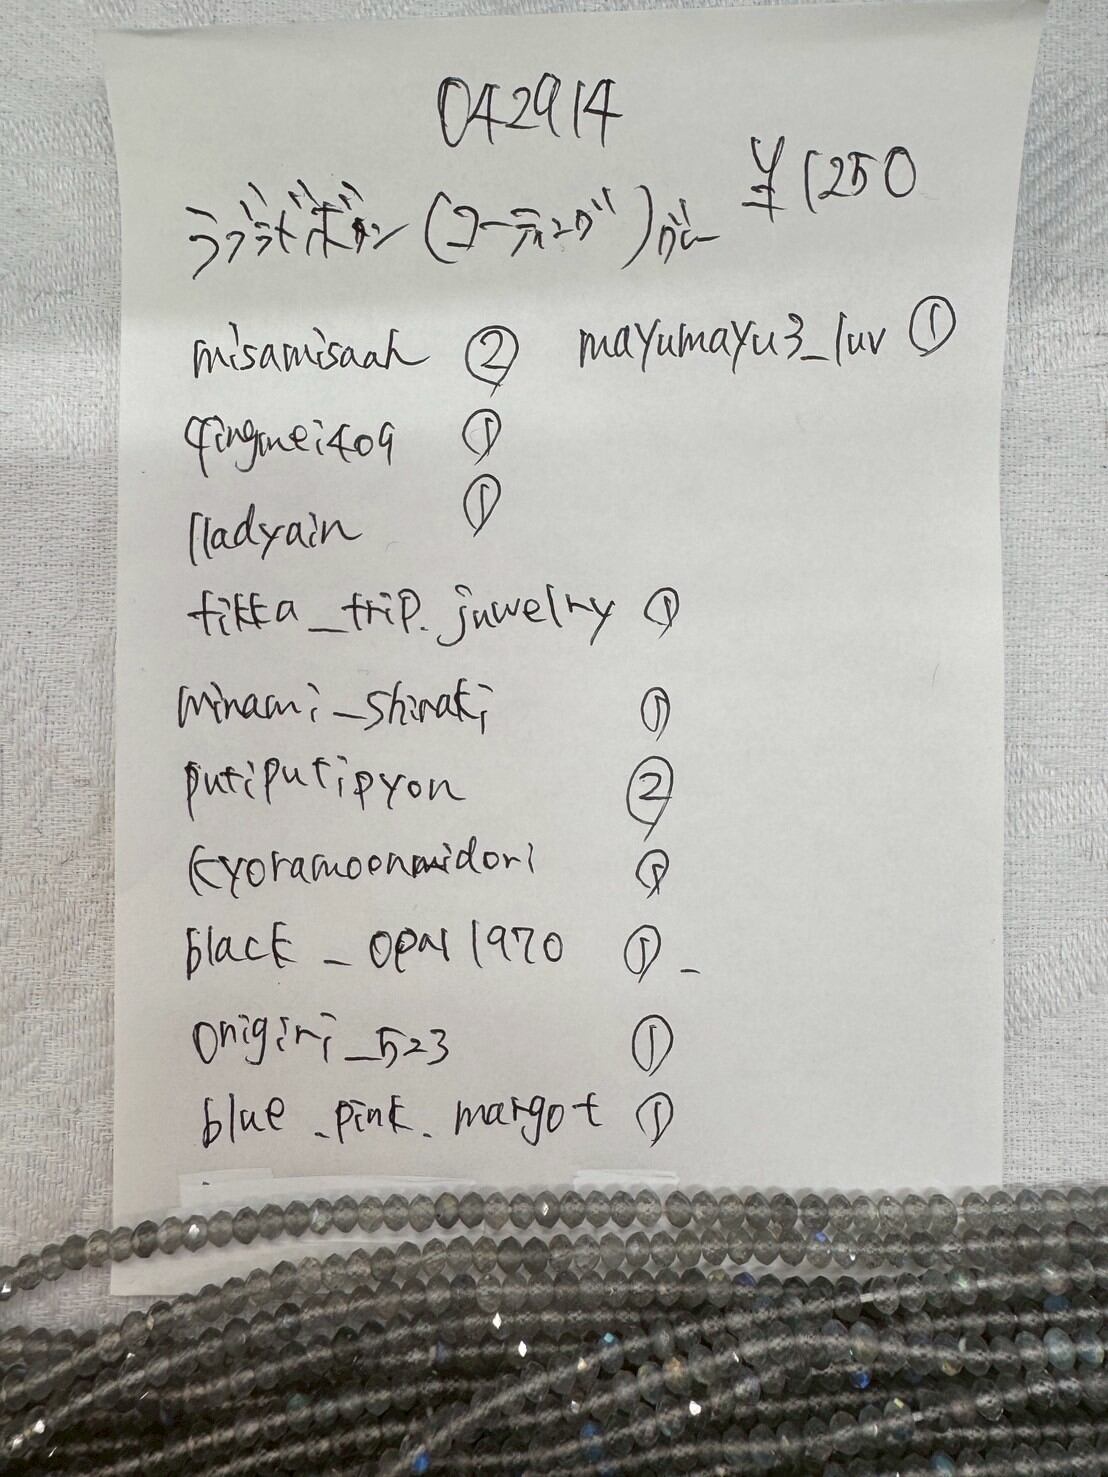 042914
¥1250
ラブラドボタン(コーティング)グレー
misamisaah ②
mayumayu3_luv ①
qingmei409 ①
lladyain ①
tikka_trip.juwelry ①
minami_shiraki ①
putiputipyon ②
kyoramoonmidori ①
black_opal1970 ①
onigiri_523 ①
blue.pink.margot ①